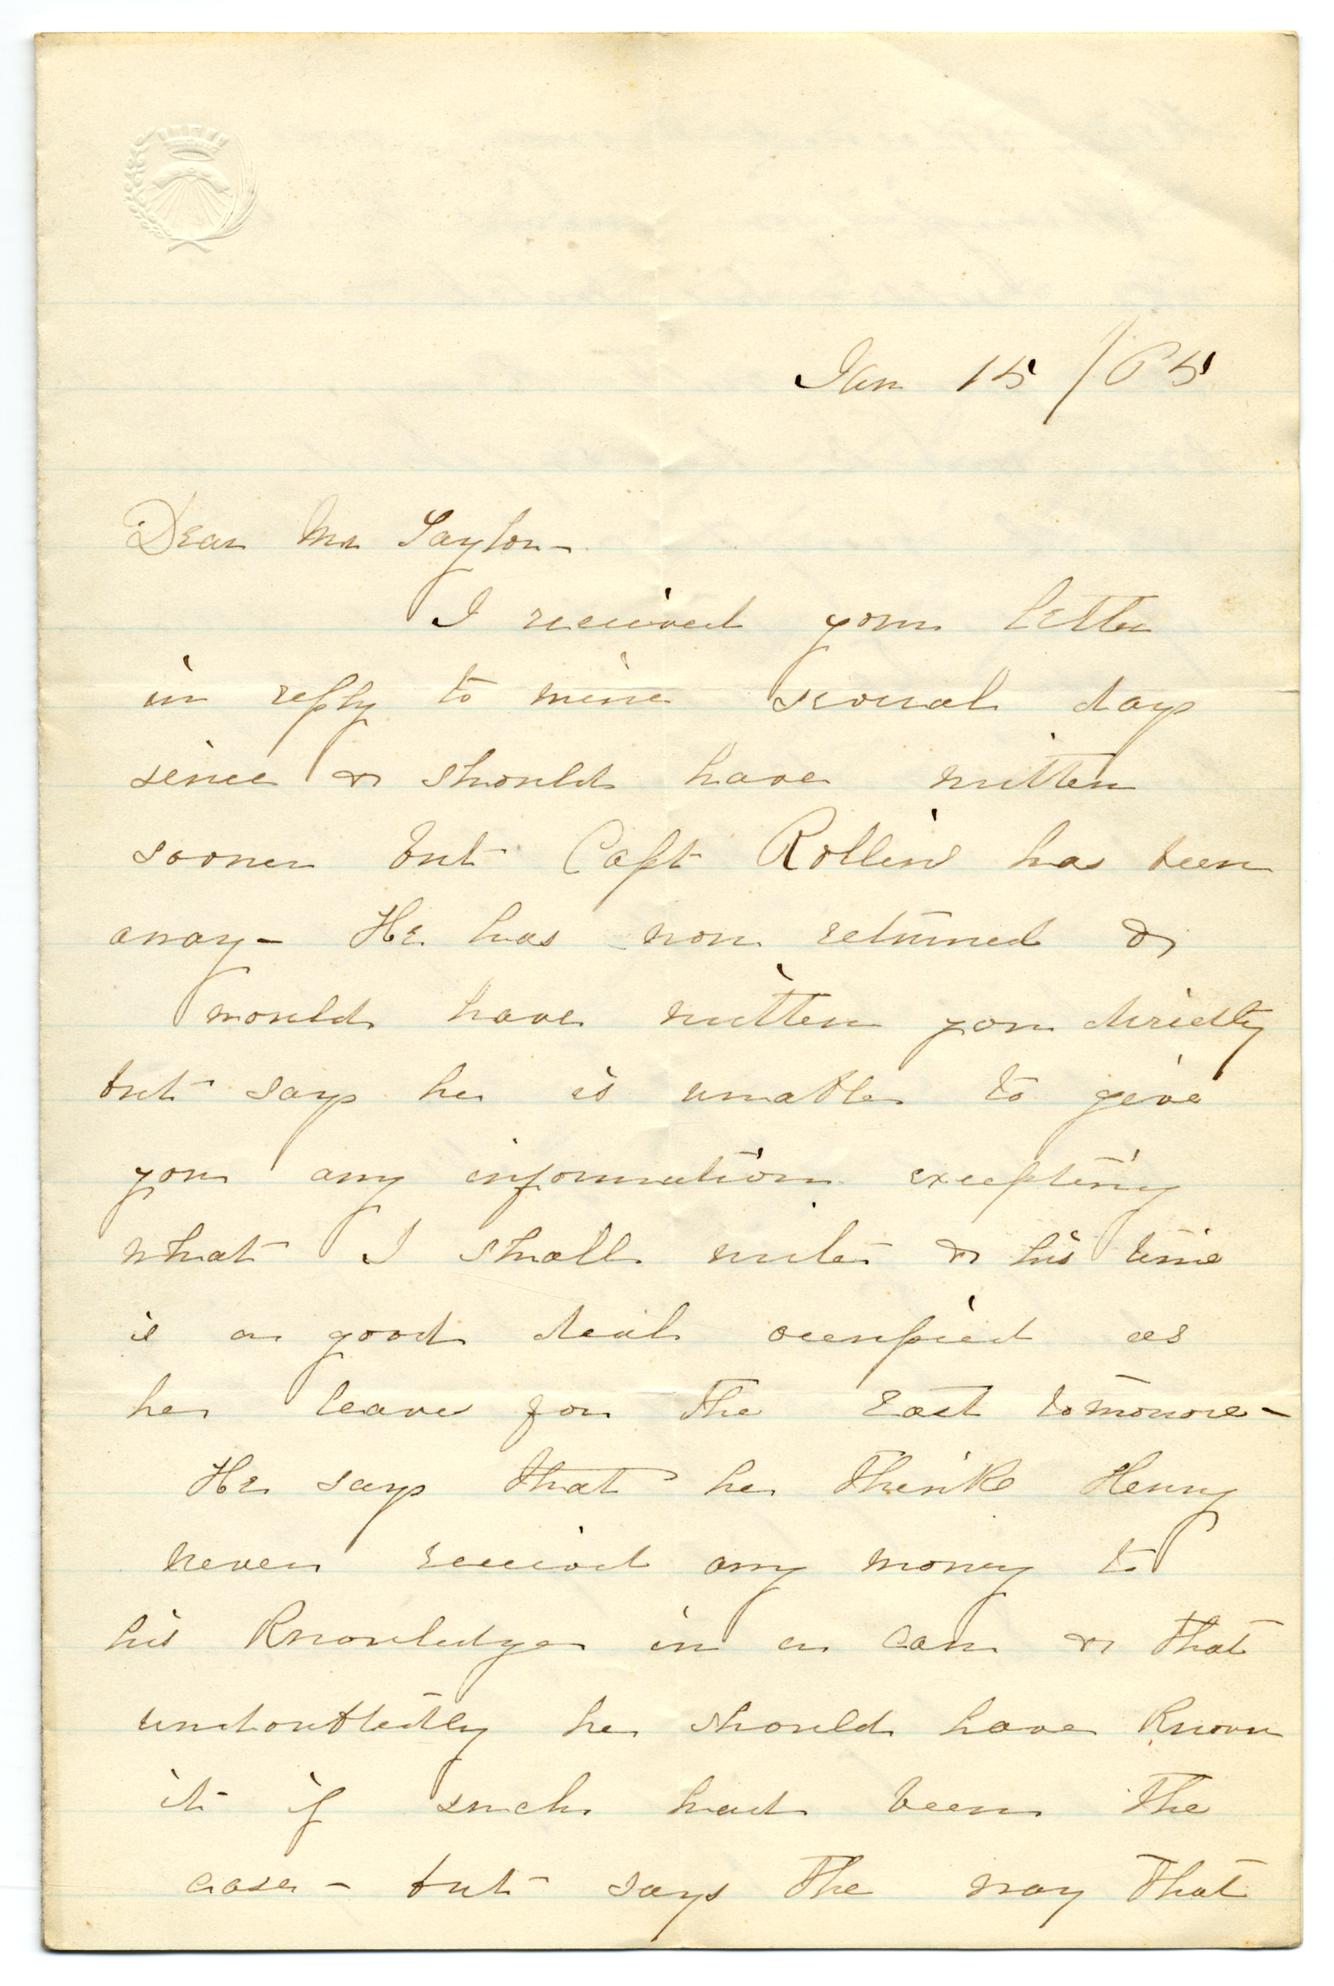 Jan 15 /65
Dear Mr Taylor-
I received your letter
in reply to mine several days
since & should have written
sooner but Capt Rollins has been
away- He has now returned &
would have written you directly
but says he is unable to give
you any information excepting
what I shall write & his time
is a good deal occupied as
he leaves for the East tomorrow-
He says that he thinks Henry
never received any money to
his knowledge in a can & that
undoubtedly he should have known
it if such had been the
case- but says the way that